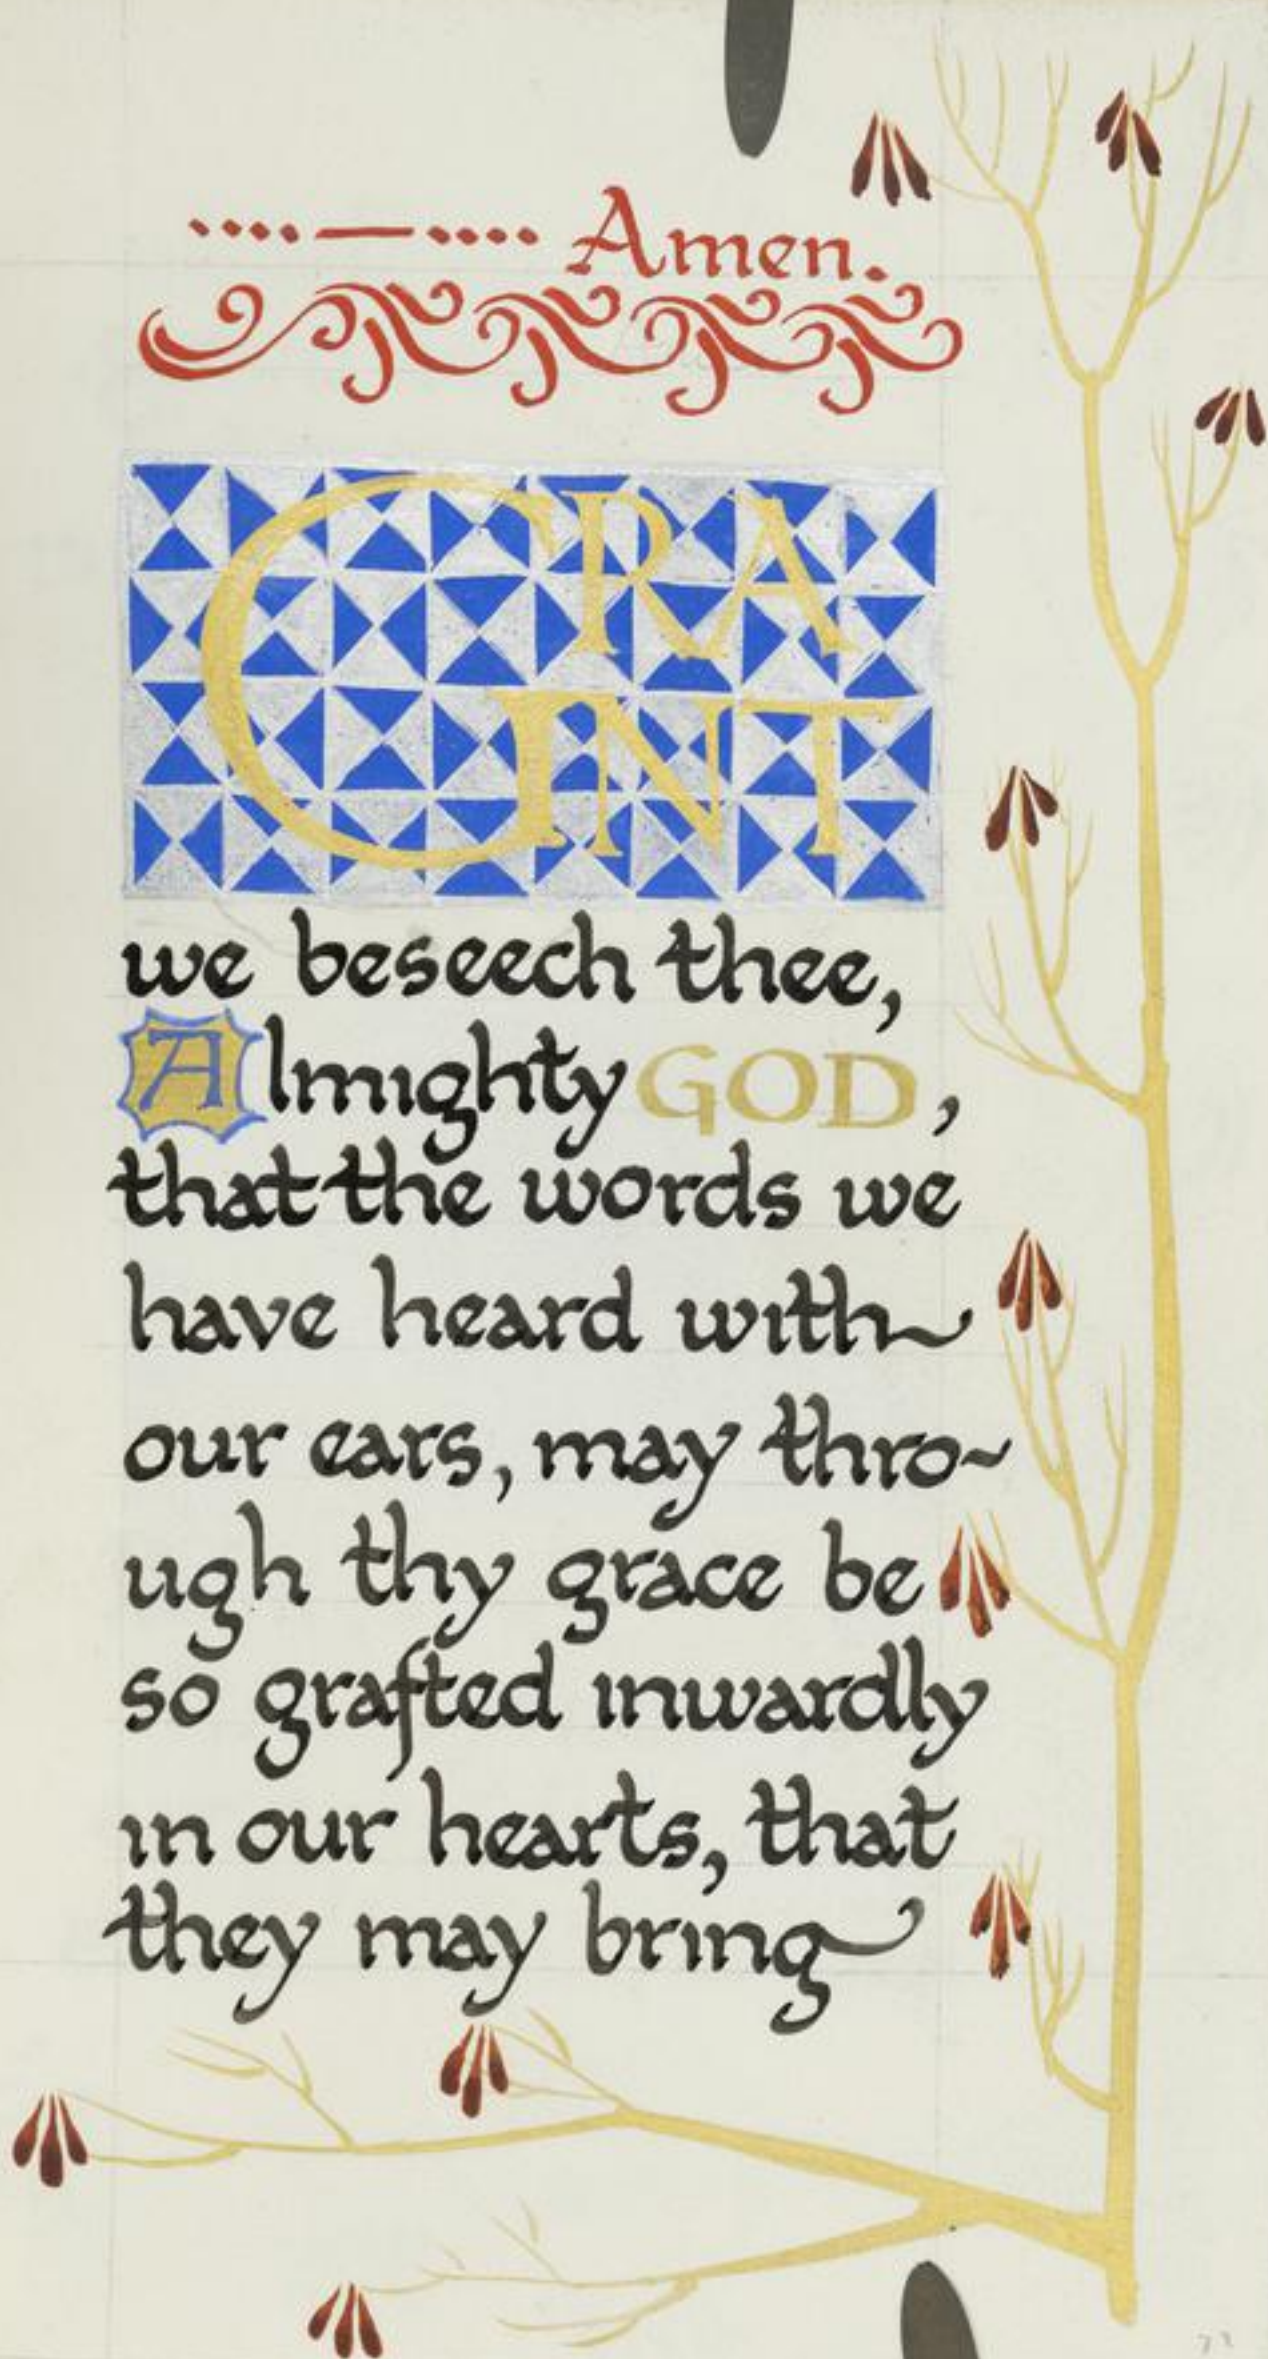 ····—···· Amen.
GRANT
we beseech thee,
Almighty GOD,
that the words we
have heard with
our ears, may thro-
ugh thy grace be
so grafted inwardly
in our hearts, that
they may bring